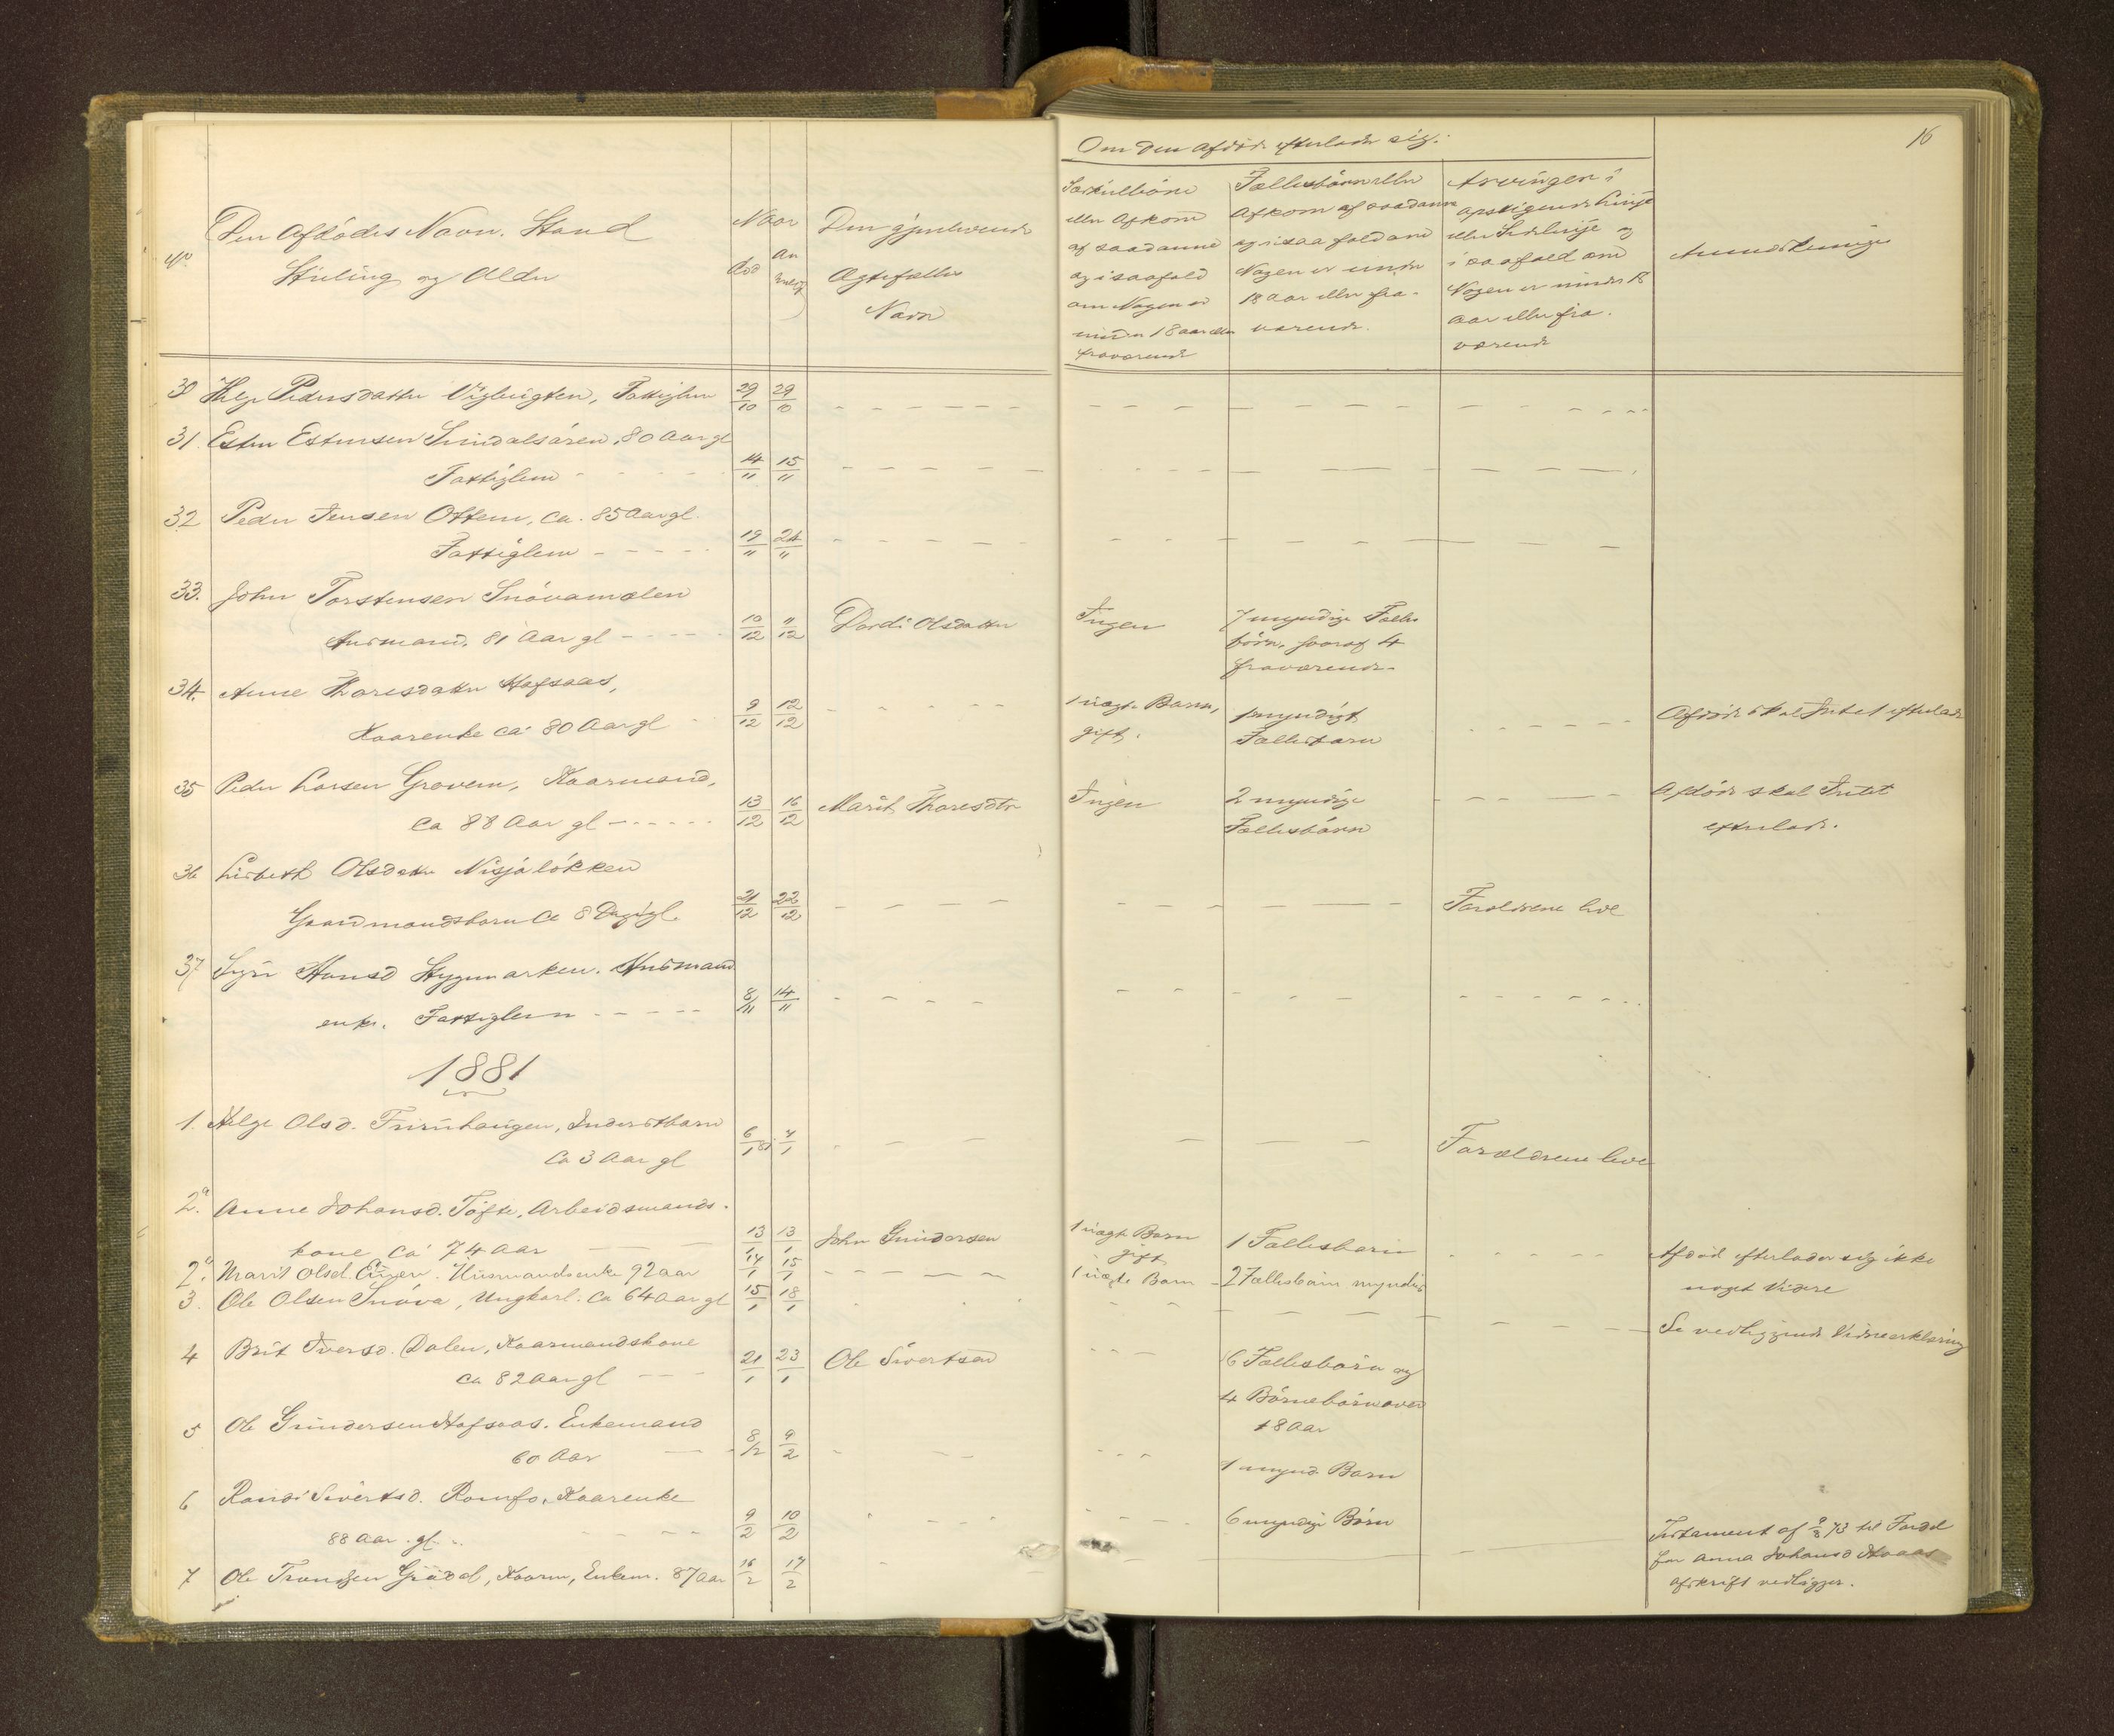 16
Om den Afdøde efterlader sig:
No
Den Afdødes Navn. Stand
Stilling og Alder
Naar
død
An
meldt
Den gjenlevende
Ægtefælles
Navn
Særkulbørn
eller Afkom
af saadanne
og i saafald
om Nogen er
under 18 aar eller
fraværende
Fællesbørn eller
Afkom af saadanne
og i saa fald om
Nogen er under
18 aar eller fra-
værende.
Arvinger i
opstigende Linje
eller Sidelinje og
i saafald om
Nogen er under 18
aar eller fra-
værende
Anmærkninger
30 Helge Pedersdatter Viglugten, Fattiglem 29/10 29/10
31. Esten Estensen Sundalsøren, 80 Aar gl
Fattiglem 14/11 15/11
32 Peder Jensen Ottem, ca. 85 Aar gl.
Fattiglem 19/11 24/11
33. John Torstensen Snøvamælen
Husmand, 81 Aar gl 10/12 11/12 Dordi Olsdatter Ingen 7 myndige Fælles
børn, hvoraf 4
fraværende.
34. Anne Thoresdatter Hafsaas,
Kaarenke ca 80 Aar gl 9/12 12/12 1 uægte Barn,
gift. 1 myndigt
Fællesbarn Afdøde skal Intet efterlade
35 Peder Larsen Grovem, Kaarmand,
ca 88 Aar gl 13/12 16/12 Marit Thoresdtr Ingen 2 myndige
Fællesbørn Afdøde skal Intet
efterlade.
36 Lisbeth Olsdatter Nisjaløkken
Gaardmandsbarn ca 8 Dage gl. 21/12 22/12 Forældrene leve
37 Siri Hansd Hyggenmarken. Husmands
enke. Fattiglem 8/11 14/11
1881
1. Helge Olsd. Furuhaugen, Inderstbarn
ca 3 Aar gl 6/1 81 7/1 Forældrene leve
2.a Anne Johansd. Tøfte, Arbeidsmands-
kone ca 74 Aar 13/1 13/1 John Gundersen 1 uægt Barn
gift 1 Fællesbarn Afdøde efterlader sig ikke
noget Videre
2.b Marit Olsd. Øien. Husmandsenke 92 aar 14/1 15/1 1 uægte Barn 2 Fællesbørn myndige
3. Ole Olsen Snøva, Ungkarl. ca 64 Aar gl 15/1 18/1 Se vedliggende Vidneerklæring
4 Brit Iversd. Dalen, Kaarmandskone
ca 82 Aar gl 21/1 23/1 Ole Sivertsen 6 Fællesbørn og
4 Børnebørn over
18 Aar
5 Ole Gundersen Hafsaas. Enkemand
60 Aar 8/2 9/2 1 mynd. Barn
6 Randi Sivertsd. Romfo, Kaarenke
88 Aar gl. 9/2 10/2 6 myndige Børn
7 Ole Trondsen Grødal, Kaarm, Enkem. 87 aar 16/2 17/2 Testament af 9/8 73 til Fordel
for Anna Johansd
afskrift vedligger.